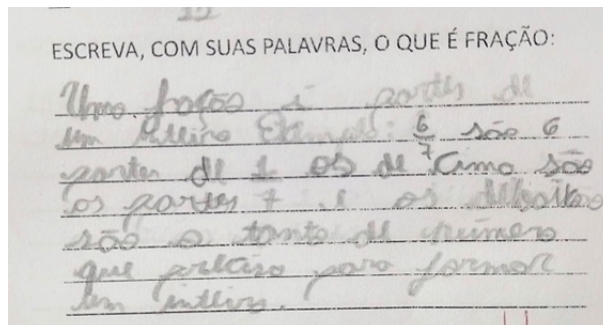 ESCREVA, COM SUAS PALAVRAS, O QUE É FRAÇÃO:
Uma fração é partes de
um inteiro Exemplo: 6/7 são 6
partes de 1 os de cima são
as partes + e os debaixo
são o tanto de número
que preciso para formar
um inteiro.